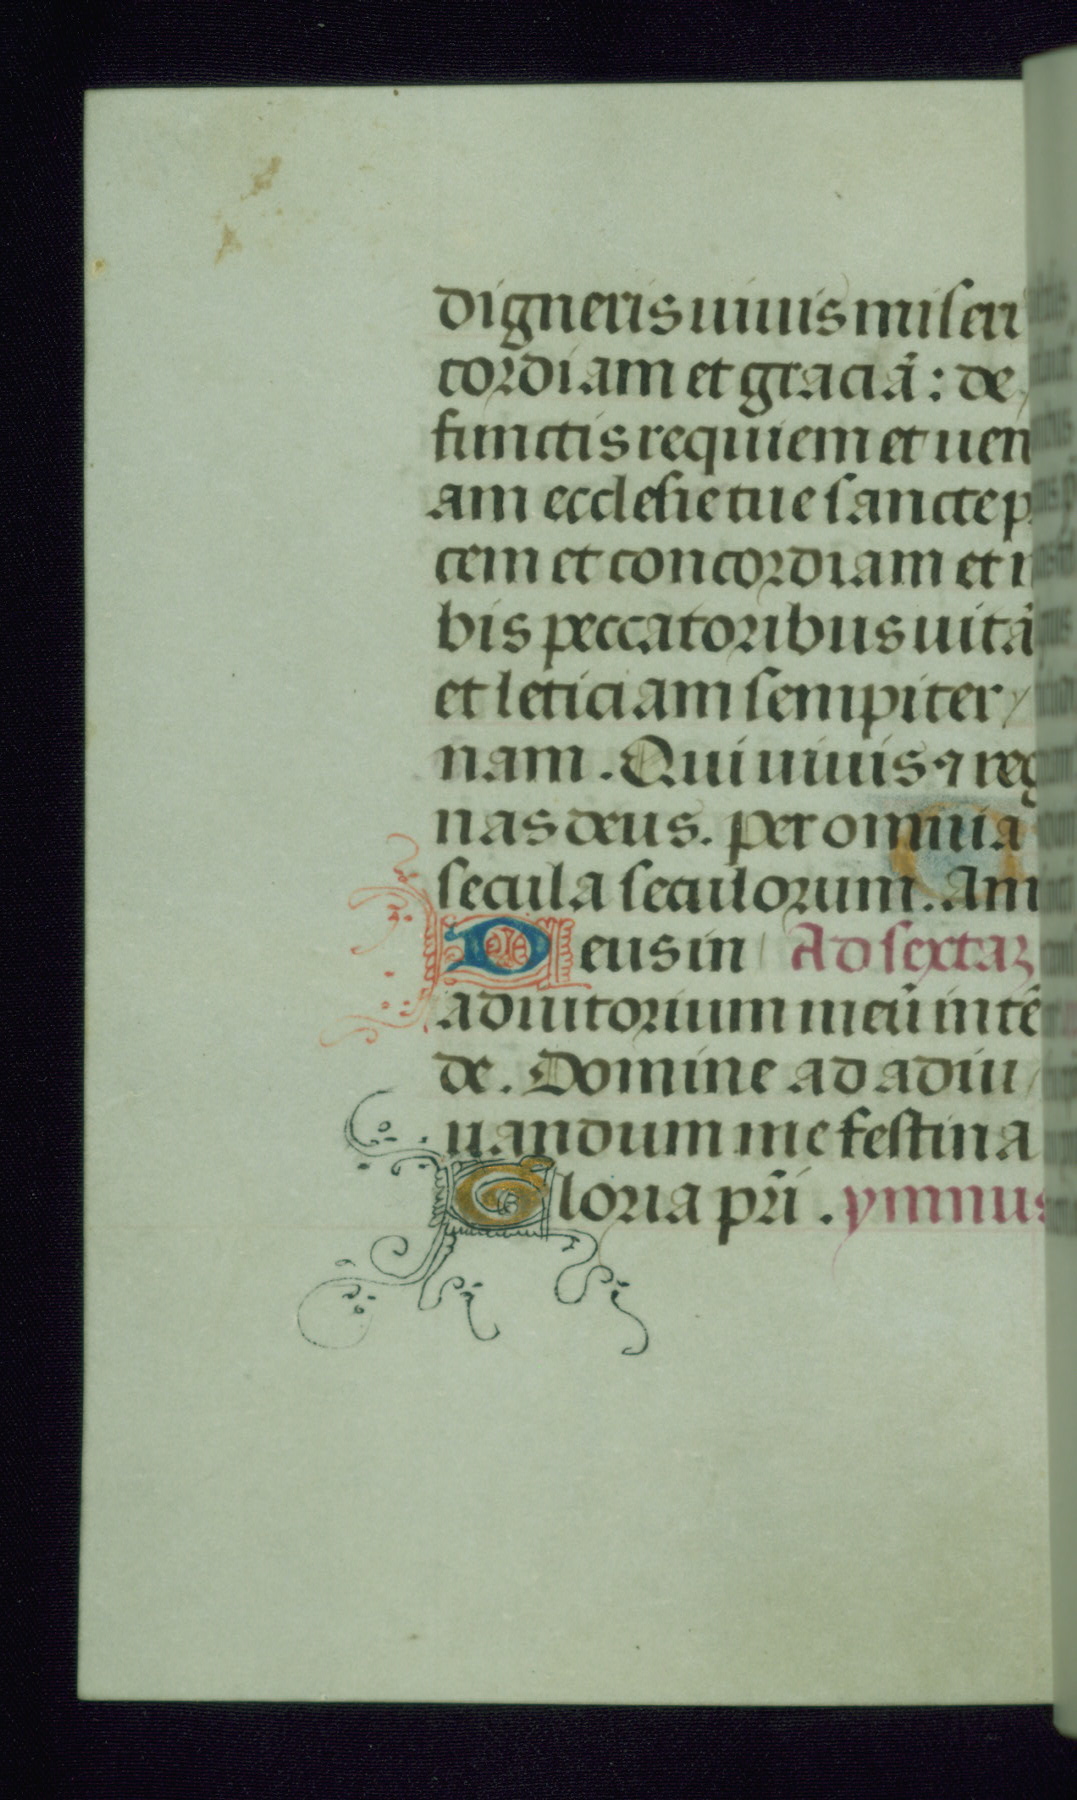 digneris uiuis miseri
cordiam et graciā : de
functis requiem et uen
am ecclesie tue sancte p
cem et concordiam et
bis peccatoribus uitā
et leticiam sempiter
nam . Qui uiuis ⁊ reg
nas deus. per omnia
secula seculorum. Am
Deus in Ad sextaꝫ
adiutorium meū intē
de. Domine ad adiu
uandum me festina
Gloria pr̄i . ymnus